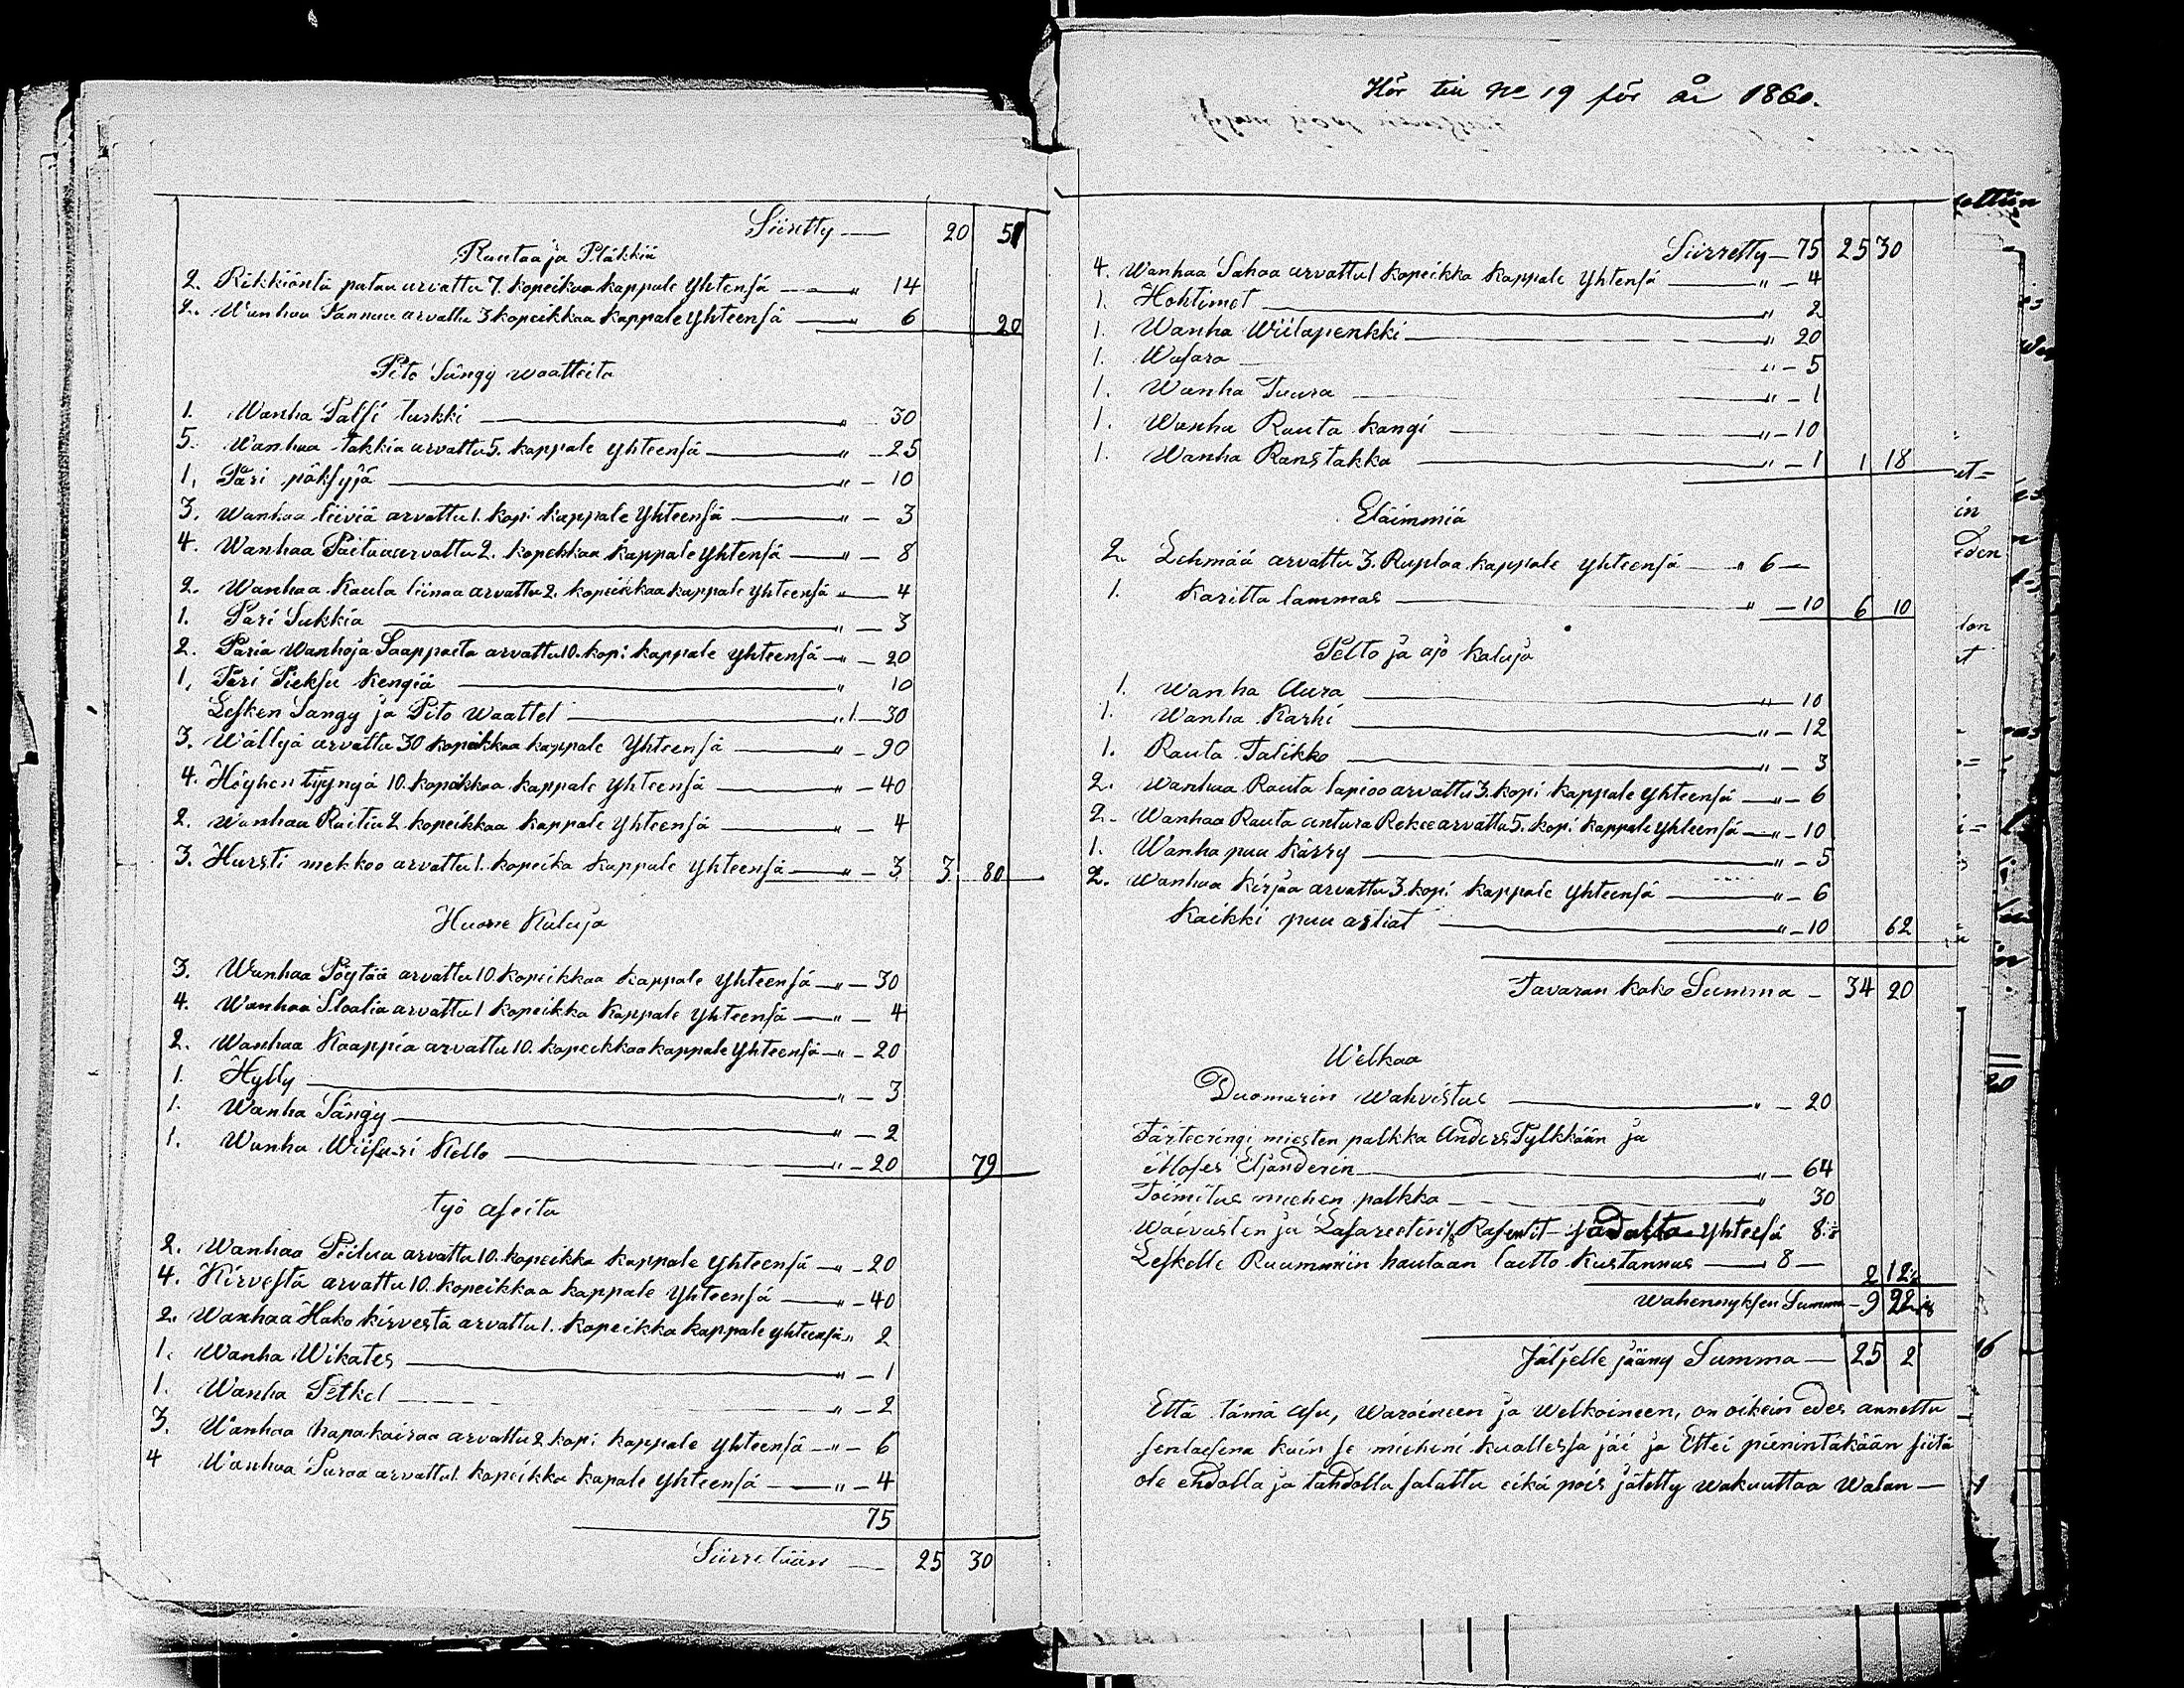 Siiretty — 20 51
Rautaa ja Pläkkiä
2. Rikkiöntä pataa arvattu 7. kopeikaa kappale Yhtensä — " 14
2. Wanhaa Pannua arvattu 3 kopeikkaa kappale Yhteensä — " 6 20
Pito Sängÿ waatteita
1. Wanha Palsi turkki — " 30
5. Wanhaa takkia arvattu 5. kappale yhteensä — " — 25
1. Pari pöksyjä — " — 10
3. Wanhaa liiviä arvattu 1. kopi kappale Yhteensä — " — 3
4. Wanhaa Paitaa arvattu 2. kopeikkaa kappale yhtensä — " — 8
2. Wanhaa Kaula liinaa arvattu 2. kopeikkaa kappale yhteensä " — 4
1. Pari Sukkia — " — 3
2. Paria Wanhoja Saappaita arvattu 10. kopi kappale yhteensä — " — 20
1. Pari Pieksu Kengiä — " 10
Lesken Sangy ja Pito Waattet — " 1 — 30
3. Wällyä arvattu 30 kopeikkaa kappale Yhteensä — " — 90
4. Höyhen tyynyä 10. kopeikkaa kappale Yhteensä — " — 40
2. Wanhaa Raitia 2 kopeikkaa kappale Yhteensä — " — 4
3. Hursti mekkoo arvattu 1. kopeika kappale Yhteensä — " — 3 3 80
Huone Kaluja
3. Wanhaa Pöytää arvattu 10. kopeikkaa kappale yhteensä — " — 30
4. Wanhaa Stoolia arvattu 1 kopeikka Kappale Yhteensä — " — 4
2. Wanhaa Kaappia arvattu 10. kopeikkaa kappale Yhteensä — " — 20
1. Hylly — " — 3
1. Wanha Sängÿ — " — 2
1. Wanha Wiisari Kello — " — 20 79
tÿö aseita
2. Wanhaa Peilua arvattu 10. kopeikka kappale yhteensä — " — 20
4. Kirvestä arvattu 10. kopeikkaa kappale Yhteensä — " — 40
2. Wanhaa Hako kirvestä arvattu 1. kopeikka kappale yhteensä " 2
1. Wanha Wikates — " — 1
1. Wanha Petkel — " — 2
3. Wanhaa Napakairaa arvattu 2 kopi kappale yhteensä — " — 6
4 Wanhaa Suraa arvattu 1. kopeikka kapale Yhteensä — " — 4
75
Siirretään — 25 30
Hör till No 19 för år 1860.
Siirretty — 75 25 30
4. Wanhaa Sahaa arvattu 1 kopeikka kappale Yhtensä — " — 4
1. Hohtimet — " 2
1. Wanha Wiilapenkki — " 20
1. Wasara — " — 5
1. Wanha Tuura — " — 1
1. Wanha Rauta kangi — " — 10
1. Wanha Ranstakka — " — 1 1 18
Eläimmiä
2. Lehmää arvattu 3. Ruplaa kappale yhteensä — " 6 —
1. Karitta lammas — " — 10 6 10
Pelto ja ajo kaluja
1. Wanha Aura — " — 10
1. Wanha Karhi — " — 12
1. Rauta Talikko — " — 3
2. Wanhaa Rauta lapioo arvattu 3. kopi kappale yhteensä — " — 6
2. Wanhaa Rauta antura Rekee arvattu 5. kopi kappale yhteensä — " — 10
1. Wanha puu kärry — " — 5
2. Wanhaa Kirjaa arvattu 3. kopi kappale yhteensä — " — 6
Kaikki puu astiat — " — 10 62
Tavaran koko Summa — 34 20
Welkaa
Duomarin Wahvistus — " — 20
Tärteeringi miesten palkka Anders Pylkkään ja
Moses Eljanderin — " — 64
Toimitus miehen palkka — " 30
Waivasten ja Lasareetin Rasentit sadalta Yhteesä 8
Leskelle Ruummiin hautaan laetto Kustannus — 8 — 2 12
Wahennyksen Summa — 9 22
Jäljelle jääny Summa — 25 2
Että tämä Asu, Waroineen ja Welkoineen, on oikein edes annettu
senlaesena kuin se mieheni kuollessa jäi ja Ettei pienintäkään siitä
ole ehdolla ja tahdolla salattu eikä pois jätetty wakuuttaa Walan —